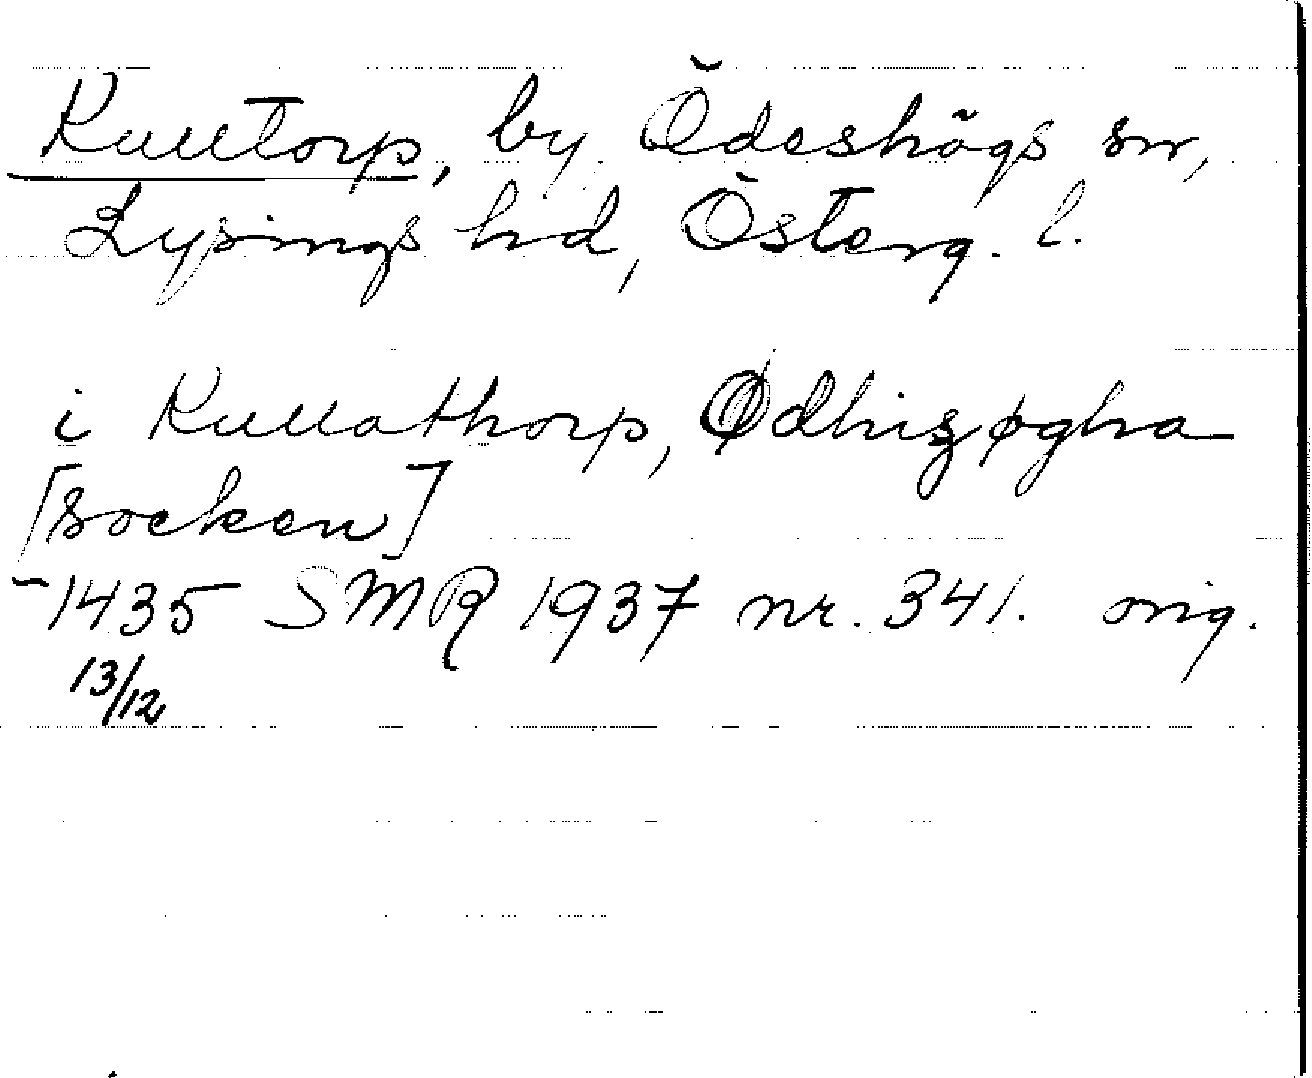 Kulltorp, by Ödeshögs sn,
Lysings hd, Österg. l.
i Kullathorp, Ødhizøgha
[socken]
1435 SMR 1937 nr. 341. orig.
13/12